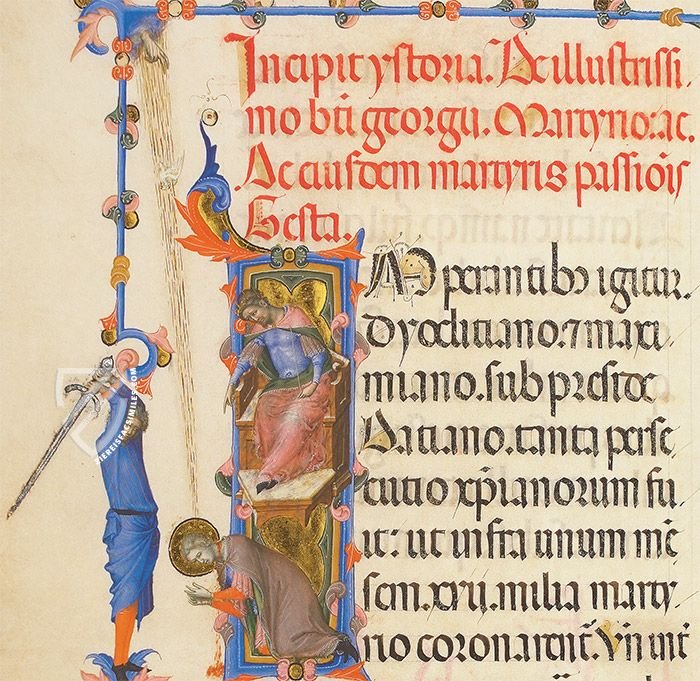 Incipit ystoria. De illustrissi.
mo bt̄i georgii. Martyrio: ac.
Ac eiusdem martyris passiōis
Gesta.
IMperantibꝰ igitur.
Dyoclitiano. ⁊ maxi
miano. sub preside
Datiano. tanta perse
cutio xp̄ianorum fu
it: ut infra unum mē
sem. xvii. milia marty
rio coronarent᷑. Vn̄
ZIEREISFACSIMILES.COM